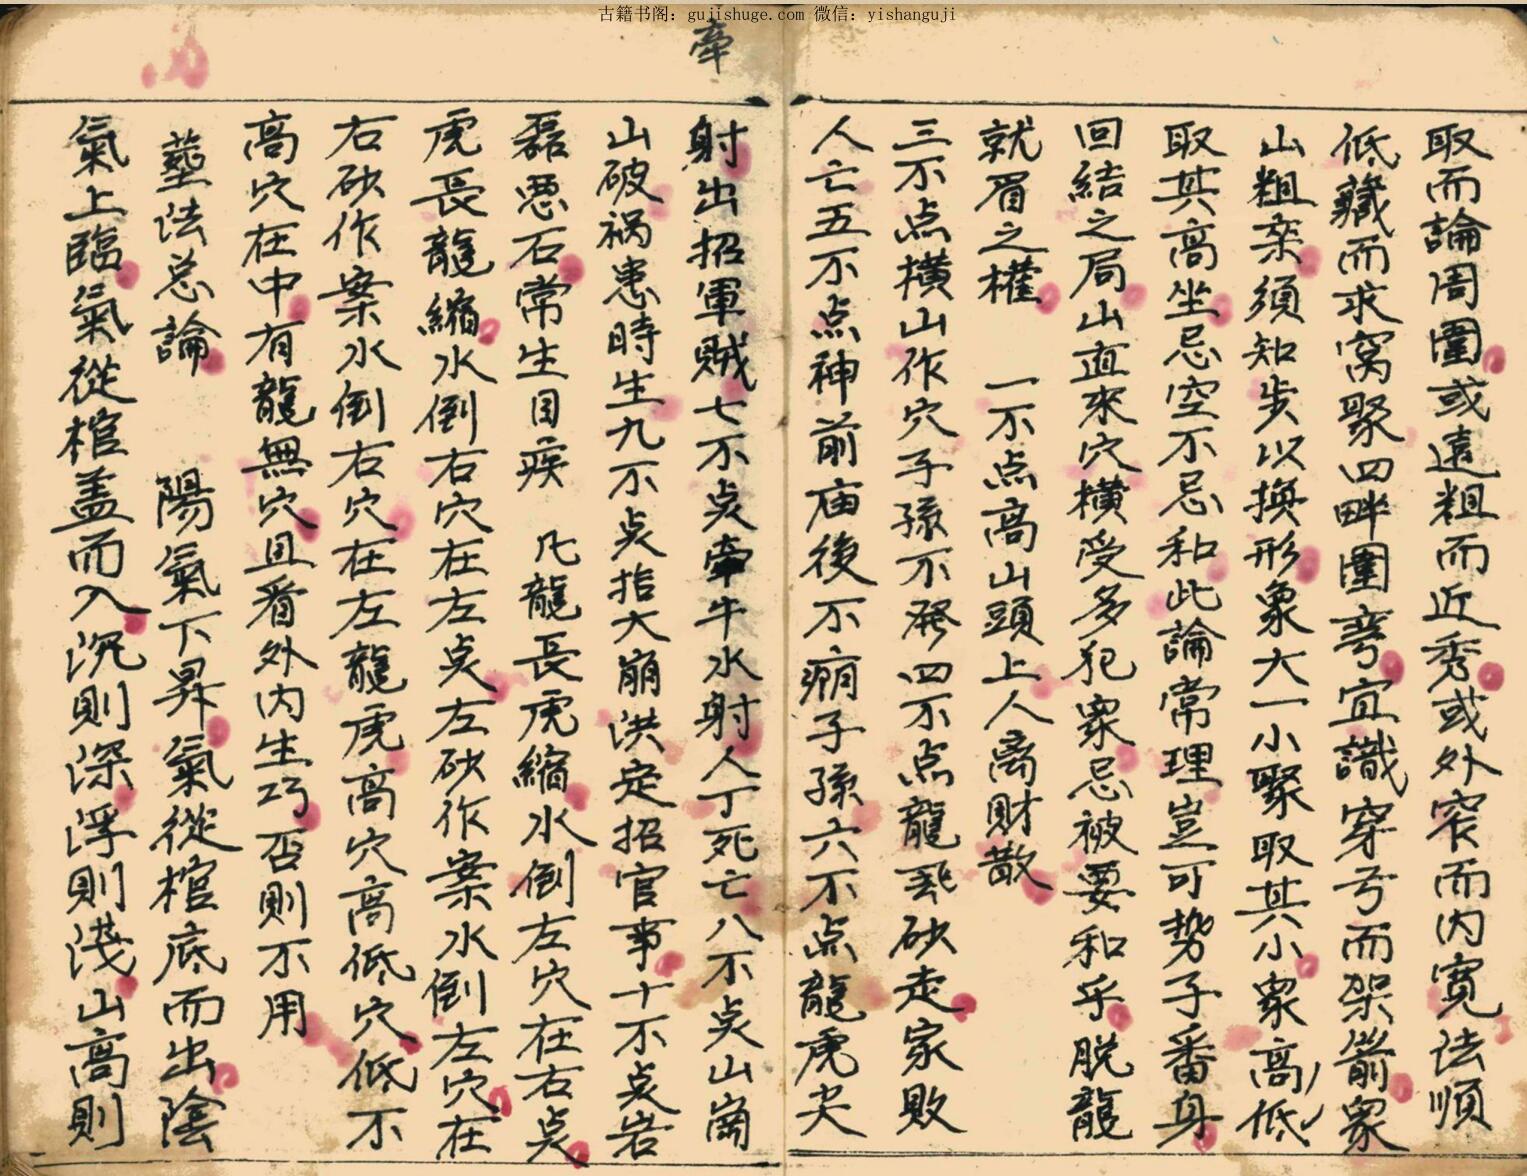 古籍书阁：gujishuge.com 微信：yishanguji
取而論周圍或遠粗而近秀或外窄而内寛法順
低藏而求窩聚四畔圍弯宜識穿兮而架箭衆
山粗案須知步以換形象大一小聚取其小衆高低
取其高坐忌空不忌和此論常理豈可势子番身
回結之局山直來穴横受多犯衆忌被要和乎脱龍
就眉之權 一不点高山頭上人离財散
三不点横山作穴子孫不発四不点龍砂走家敗
人亡五不点神前庙後不痢子孫六不点龍虎尖
牽
射出招軍賊七不点牽牛水射人丁死亡八不点山崗
山破祸患時生九不点抬大崩洪定招官事十不点岩
磊恶石常生目疾 凡龍長虎縮水倒左穴在右点
虎長龍縮水倒右穴在左点左砂作案水倒左穴在
右砂作案水倒右穴在左龍虎高穴高低穴低不
高穴在中有龍無穴且看外内生巧否則不用
塟法总論 陽氣下昇氣從棺底而出陰
氣上臨氣從棺盖而入沉則深浮則淺山高則